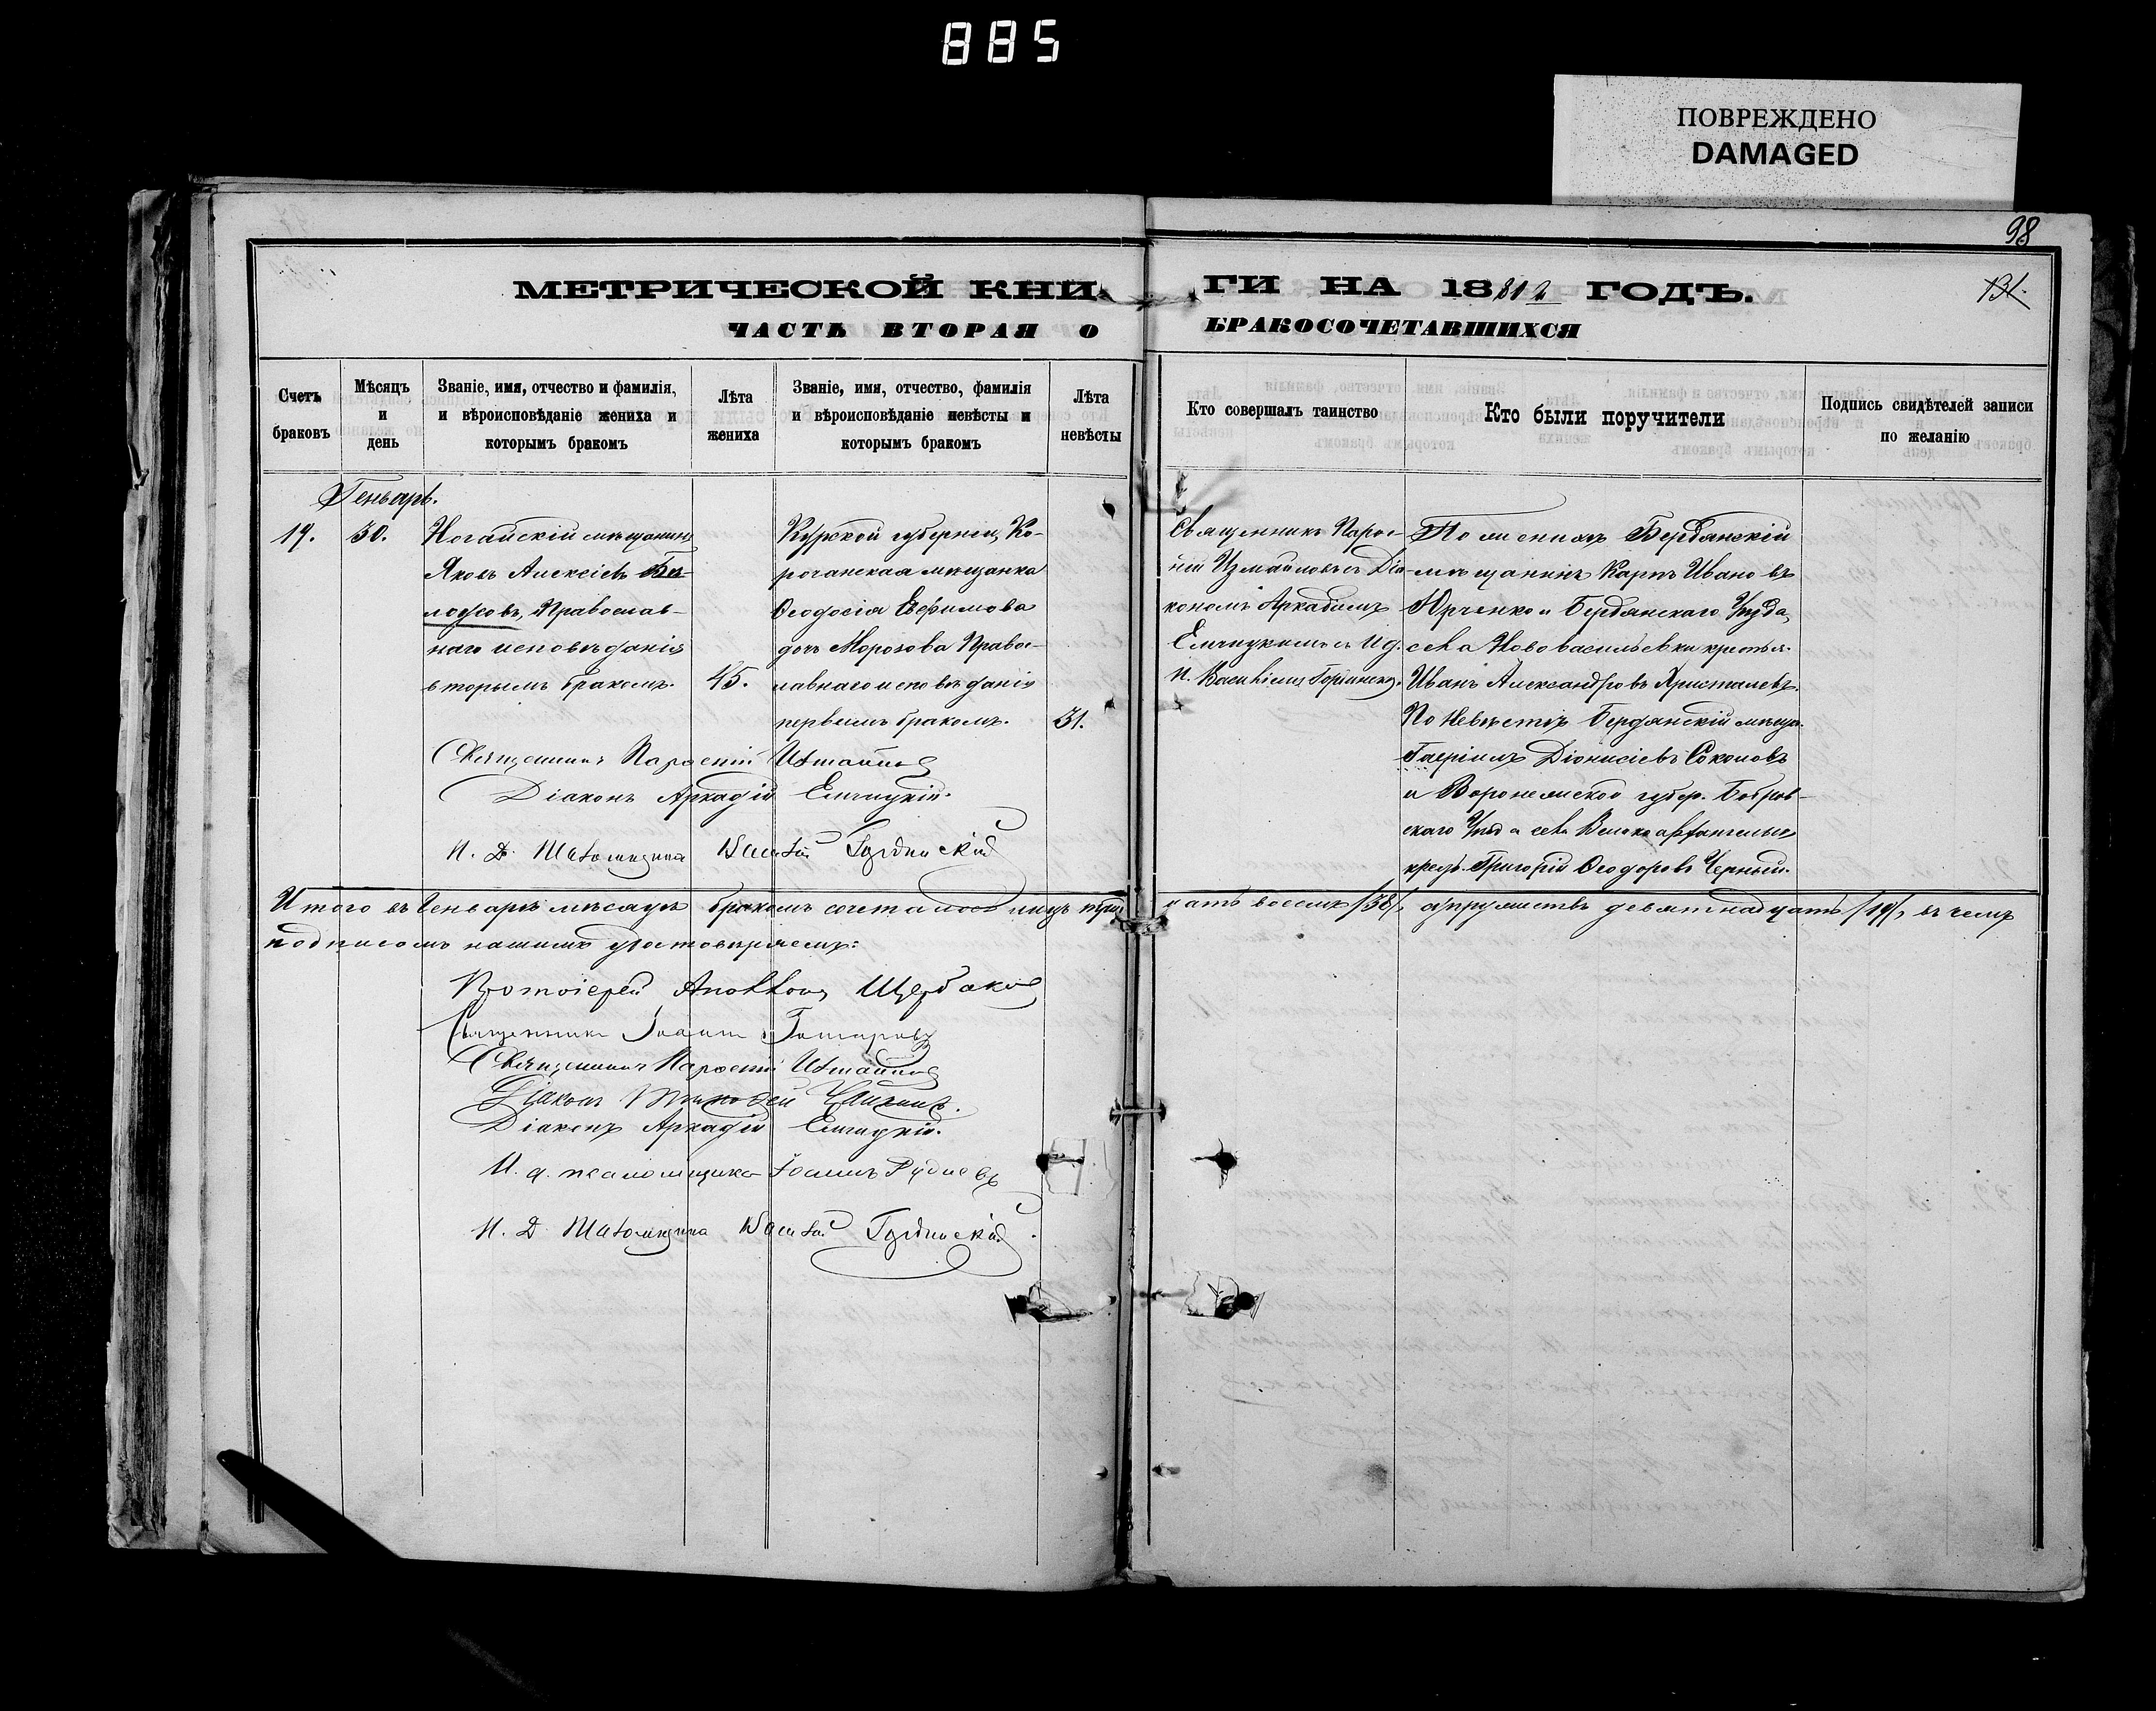 885
ПОВРЕЖДЕНО
DAMAGED
98
МЕТРИЧЕСКОЙ КНИ
ГИ НА 1882 ГОДЪ.
131.
ЧАСТЬ ВТОРАЯ О
БРАКОСОЧЕТАВШИХСЯ
Счетъ браковъ
Мѣсяцъ и день
Званіе, имя, отчество и фамилія,
и вѣроисповѣданіе жениха и
которымъ бракомъ
Лѣта жениха
Званіе, имя, отчество, фамилія
и вѣроисповѣданіе невѣсты и
которымъ бракомъ
Лѣта невѣсты
Кто совершалъ таинство
Кто были поручители
Подпись свидѣтелей записи
по желанію
Геньварь.
19.
30.
Ногайскій мѣщанинъ
Яковъ Алексіевъ
Православ-
наго исповѣданія
вторымъ бракомъ.
45.
Курской губерніи, Ко-
рочанская мѣщанка
Ѳеодосія Евфимова
дочь Морозова Правос-
лавнаго исповѣданія
первымъ бракомъ.
31.
Священникъ
Измайловъ съ Діа-
кономъ Аркадіемъ
Елчицкимъ и И. д.
п. Василіемъ
По женихѣ Бердянскій
мѣщанинъ Карпъ Ивановъ
Юрченко и Бердянскаго Уѣзда,
села Нововасильевки крестьян.
Иванъ Александровъ Христалевъ.
По Невѣстѣ Бердянскій мѣщан.
Гавріилъ Діонисіевъ Соколовъ
и Воронежской губер. Бобров-
скаго Уѣзда села
крест. Григорій Ѳеодоровъ Черный.
Священникъ Измайловъ
Діаконъ Аркадій Елчицкій.
И. Д. Псаломщика Василій
Итого въ Генварѣ мѣсяцѣ бракомъ сочеталось лицъ трид
цать восемь /38/, а супружествъ девятнадцать /19/, въ чемъ
подписомъ нашимъ удостовѣряемъ:
Протоіерей Аполлонъ Щербаковъ
Священникъ Іоаннъ
Священникъ Измайловъ
Діаконъ
Діаконъ Аркадій Елчицкій.
И. д. псаломщика Іоаннъ Рудневъ
И. Д. Псаломщика Василій